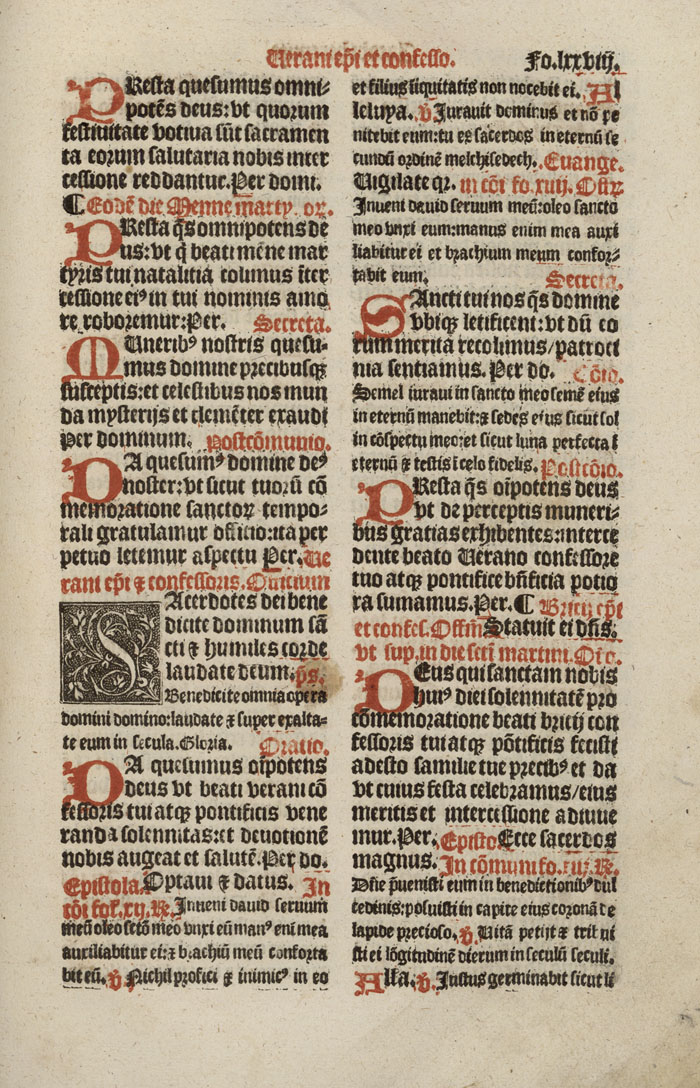 Uerani epĩ et confesso.
Fo.lxxviij.
PResta quesumus omni-
potẽs deus: vt quorum
festiuitate votiua sũt sacramen
ta eorum salutaria nobis inter
cessione reddantur. Per domi.
¶ Eodẽ die Menne m̃arty. or.
PResta q̃s omnipotens de
us: vt q̃ beati mẽne mar
tyris tui natalitia colimus ĩter
cessione eiꝰ in tui nominis amo
re roboremur: Per. Secreta.
MUneribꝰ nostris quesu-
mus domine precibusqꝫ
susceptis: et celestibus nos mun
da mysterijs et clemẽter exaudi
Per dominum. Postcõmunio.
DA quesumꝰ domine deꝰ
noster: vt sicut tuorũ cõ
memoratione sanctorũ tempo-
rali gratulamur officio: ita per
petuo letemur aspectu Per. Ue
rani epĩ ⁊ confessoris. Officium
SAcerdotes dei bene
dicite dominum sã
cti ⁊ humiles corde
laudate deum. p̃s.
Benedicite omnia opera
domini domino: laudate ⁊ super exalta-
te eum in secula. Gloria. Oratio.
DA quesumus oĩpotens
deus vt beati verani cõ
fessoris tui atqꝫ pontificis vene
randa solennitas: et deuotionẽ
nobis augeat et salutẽ. Per do.
Epistola. Optaui ⁊ datus. In
cõi fol. xij. ℟. Inueni dauid seruum
meũ oleo sctõ meo vnxi eũ manꝰ enĩ mea
auxiliabitur ei: ⁊ brachiũ meũ conforta
bit eũ. ℣ Nichil profici ⁊ inimicꝰ in eo
et filius iiquitatis non nocebit ei. Al
leluya. ℣ Iurauit dominus et nõ pe
nitebit eum: tu es sacerdos in eternũ se
cundũ ordinẽ melchisedech. Euange.
Uigilate qr. in cõi fo. xiiij. Offr
Inueni dauid seruum meũ: oleo sancto
meo vnxi eum: manus enim mea auxi
liabitur ei et brachium meum confor-
tabit eum. Secreta.
SAncti tui nos q̃s domine
vbiqꝫ letificent: vt dũ eo
rum merita recolimus/ patroci
nia sentiamus. Per do. Cõio.
Semel iuraui in sancto meo semẽ eius
in eternũ manebit: ⁊ sedes eius sicut sol
in cõspectu meo: et sicut luna perfecta ĩ
eternũ ⁊ testis ĩ celo fidelis. Postcõio.
PResta q̃s oĩpotens deus
vt de perceptis muneri-
bus gratias exhibentes: interce
dente beato Uerano confessore
tuo atqꝫ pontifice bñficia potio
ra sumamus. Per. ¶ Bricij epĩ
et confes. Offm̃ Statuit ei dñs.
vt sup. in die scti martini. Oĩo.
DEus qui sanctam nobis
huiꝰ diei solennitatẽ pro
cõmemoratione beati bricij con
fessoris tui atqꝫ põtificis fecisti
adesto familie tue precibꝰ et da
vt cuius festa celebramus/ eius
meritis et intercessione adiuue
mur. Per. Episto Ecce sacerdos
magnus. In cõmuni fo. xij. ℟.
Dñe p̃uenisti eum in benedictionibꝰ dul
cedinis: posuisti in capite eius coronã de
lapide precioso. ℣ Uitã petijt ⁊ tribui
sti ei lõgitudinẽ dierum in seculũ seculi.
Alla. ℣. Iustus germinabit sicut li